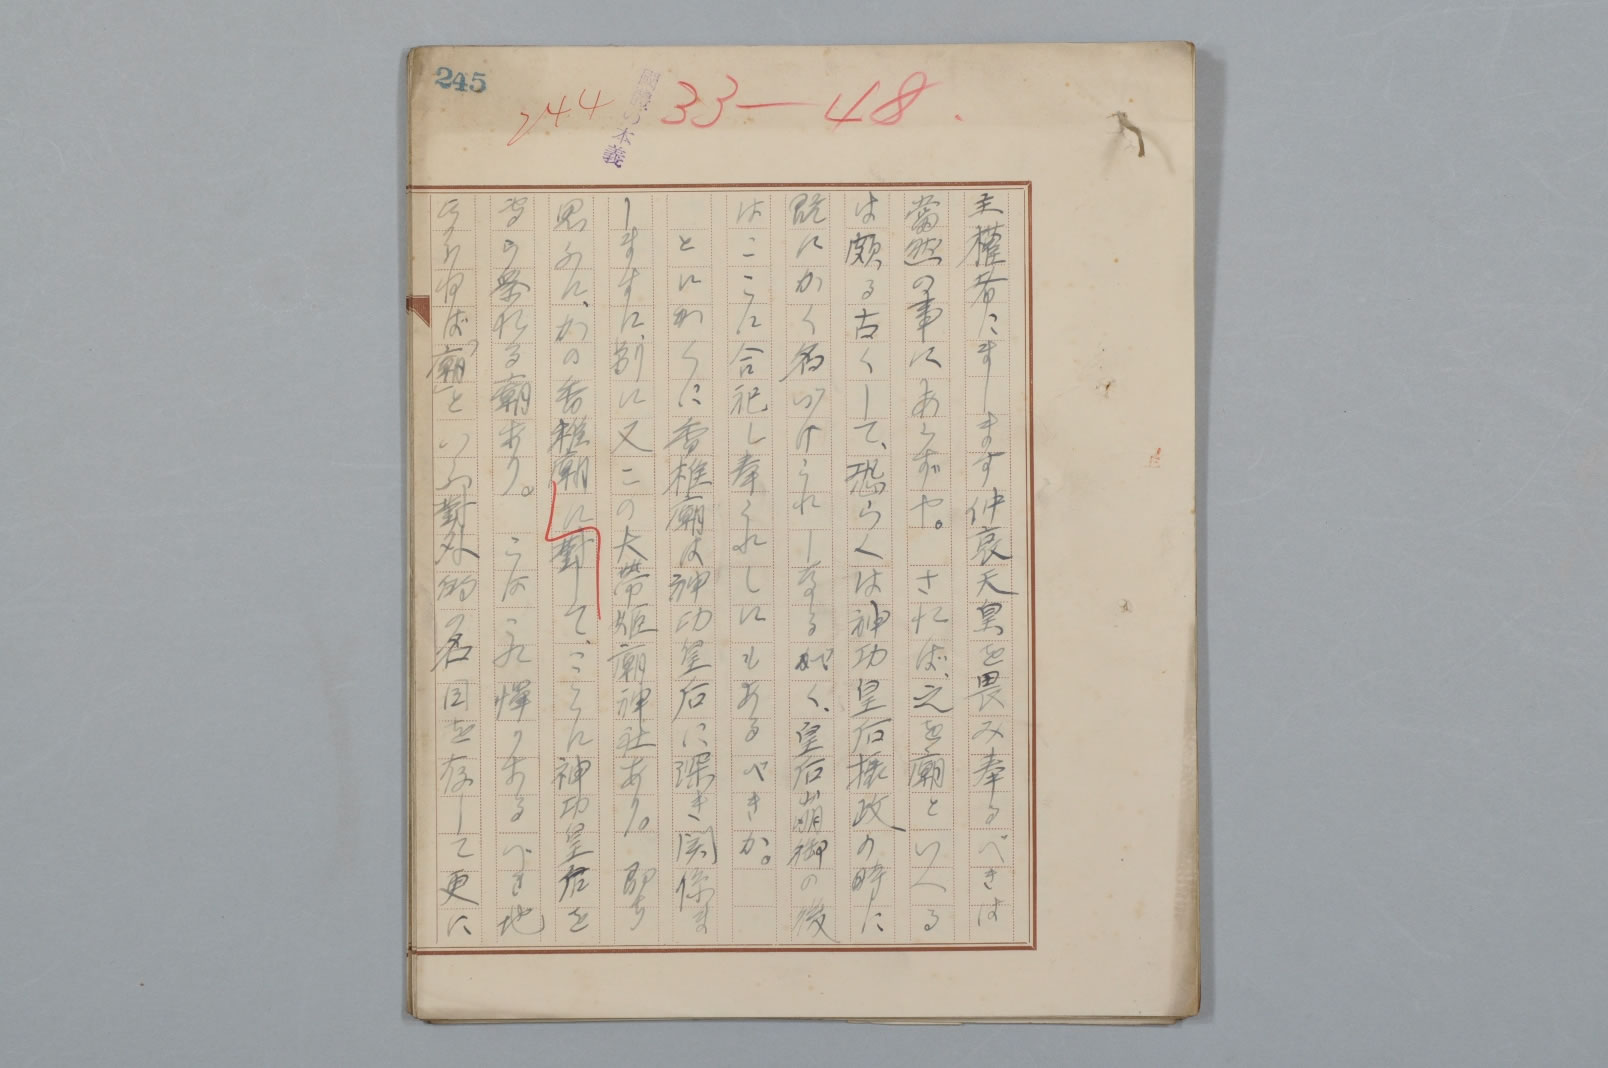 245
244
33—48.
國體の本義
主權者にまします仲哀天皇を畏み奉るべきは
當然の事にあらずや。されば、之を廟といへる
は頗る古くして、恐らくは神功皇后攝政の時に
既にかく名づけられしなるべく、皇后崩御の後
はここに合祀し奉られしにもあるべきか。
とにかくに香椎廟は神功皇后に深き関係ま
しますに、別に又この大帯姫廟神社あり。即ち
思ふに、かの香椎廟に對して、ここに神功皇后を
の祭れる廟あり。こはに憚りあるべき地
ならねば「廟」といふ對外的の名目を存して更に